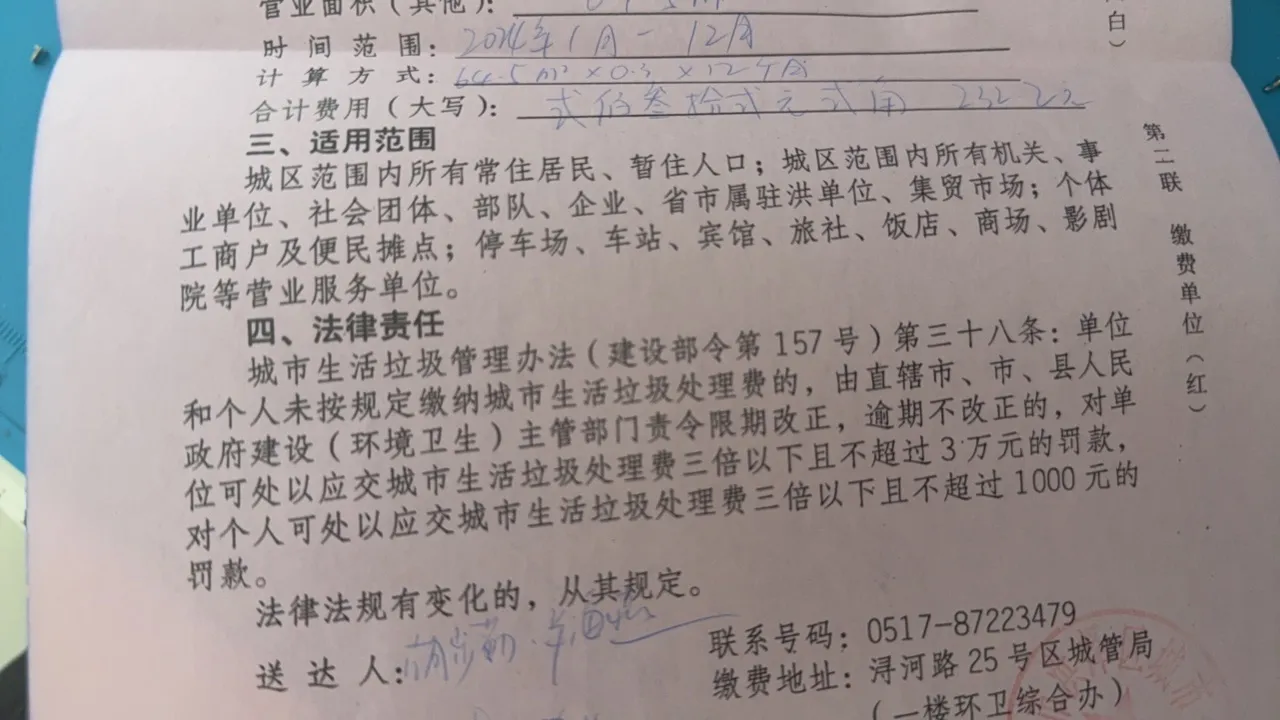 营业面积(其他):
时间范围: 2024年1月－12月
计算方式: 64.5m²×0.3×12个月
合计费用(大写): 弍佰叁拾弍元弍角 232.2元
三、适用范围
城区范围内所有常住居民、暂住人口；城区范围内所有机关、事
业单位、社会团体、部队、企业、省市属驻洪单位、集贸市场；个体
工商户及便民摊点；停车场、车站、宾馆、旅社、饭店、商场、影剧
院等营业服务单位。
四、法律责任
城市生活垃圾管理办法(建设部令第157号)第三十八条：单位
和个人未按规定缴纳城市生活垃圾处理费的，由直辖市、市、县人民
政府建设(环境卫生)主管部门责令限期改正，逾期不改正的，对单
位可处以应交城市生活垃圾处理费三倍以下且不超过3万元的罚款，
对个人可处以应交城市生活垃圾处理费三倍以下且不超过1000元的
罚款。
法律法规有变化的，从其规定。
送达人:
联系号码: 0517-87223479
缴费地址: 浔河路25号区城管局
(一楼环卫综合办)
白)
第二联 缴费单位(红)